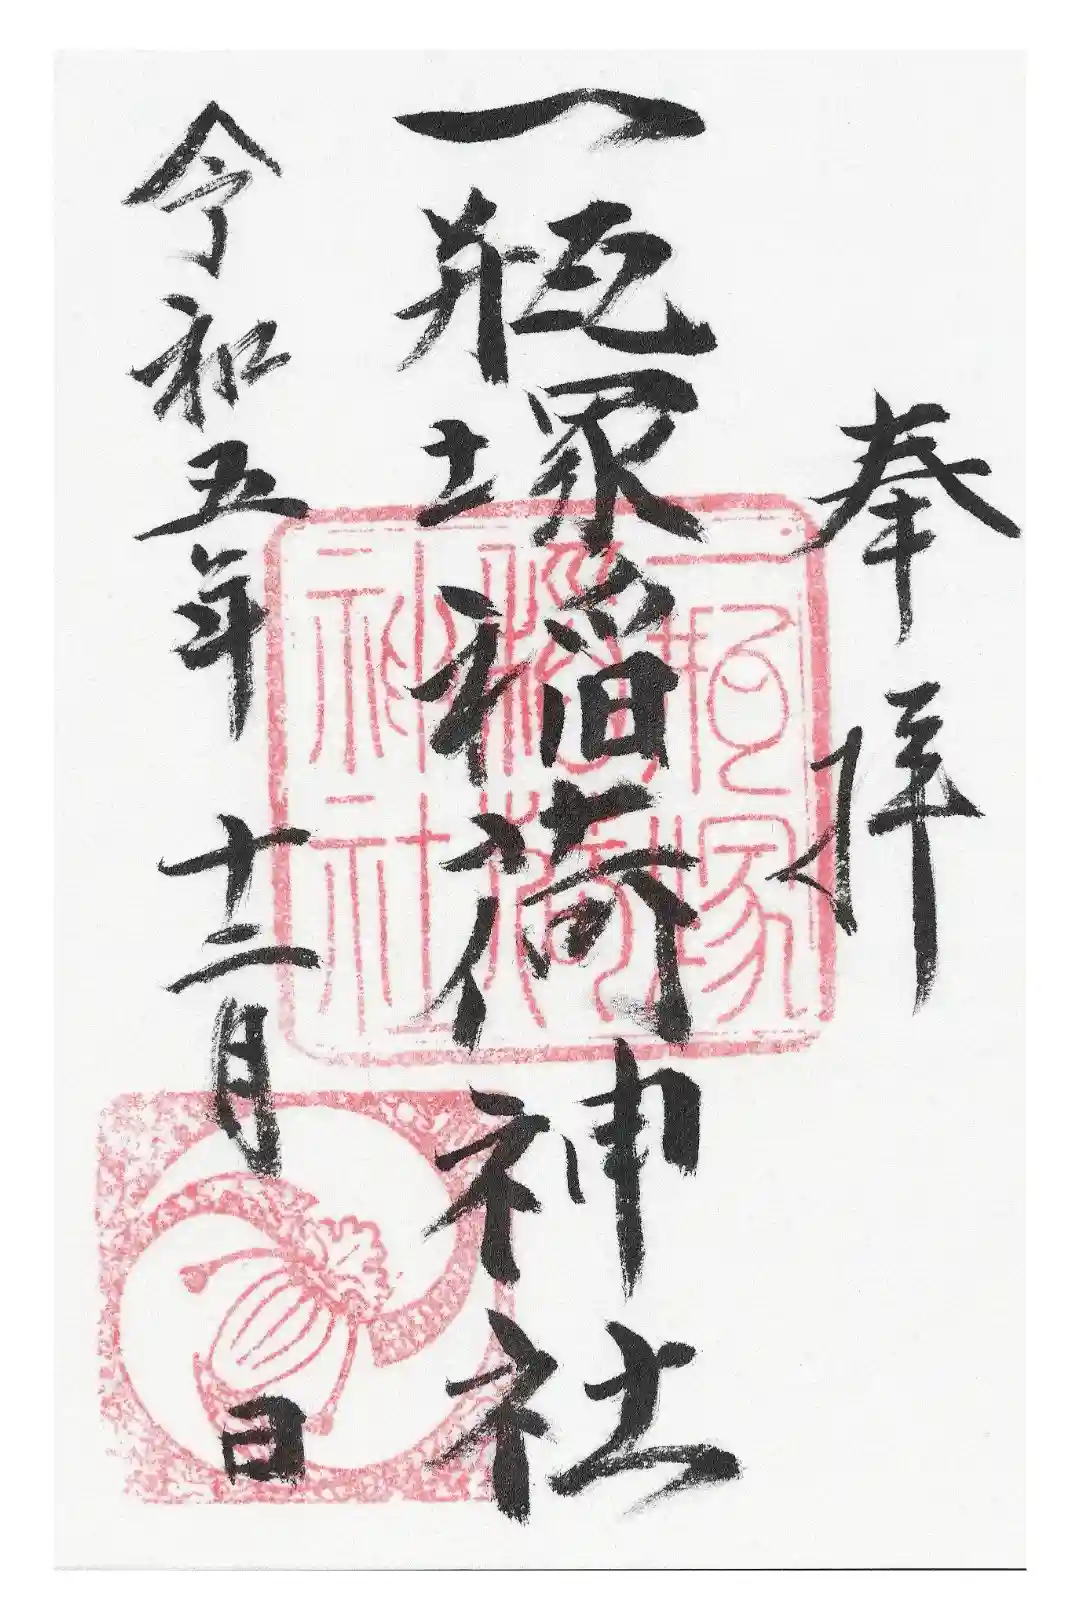 奉拝
一瓶塚稲荷神社
一瓶塚稲荷神社
令和五年十二月 日